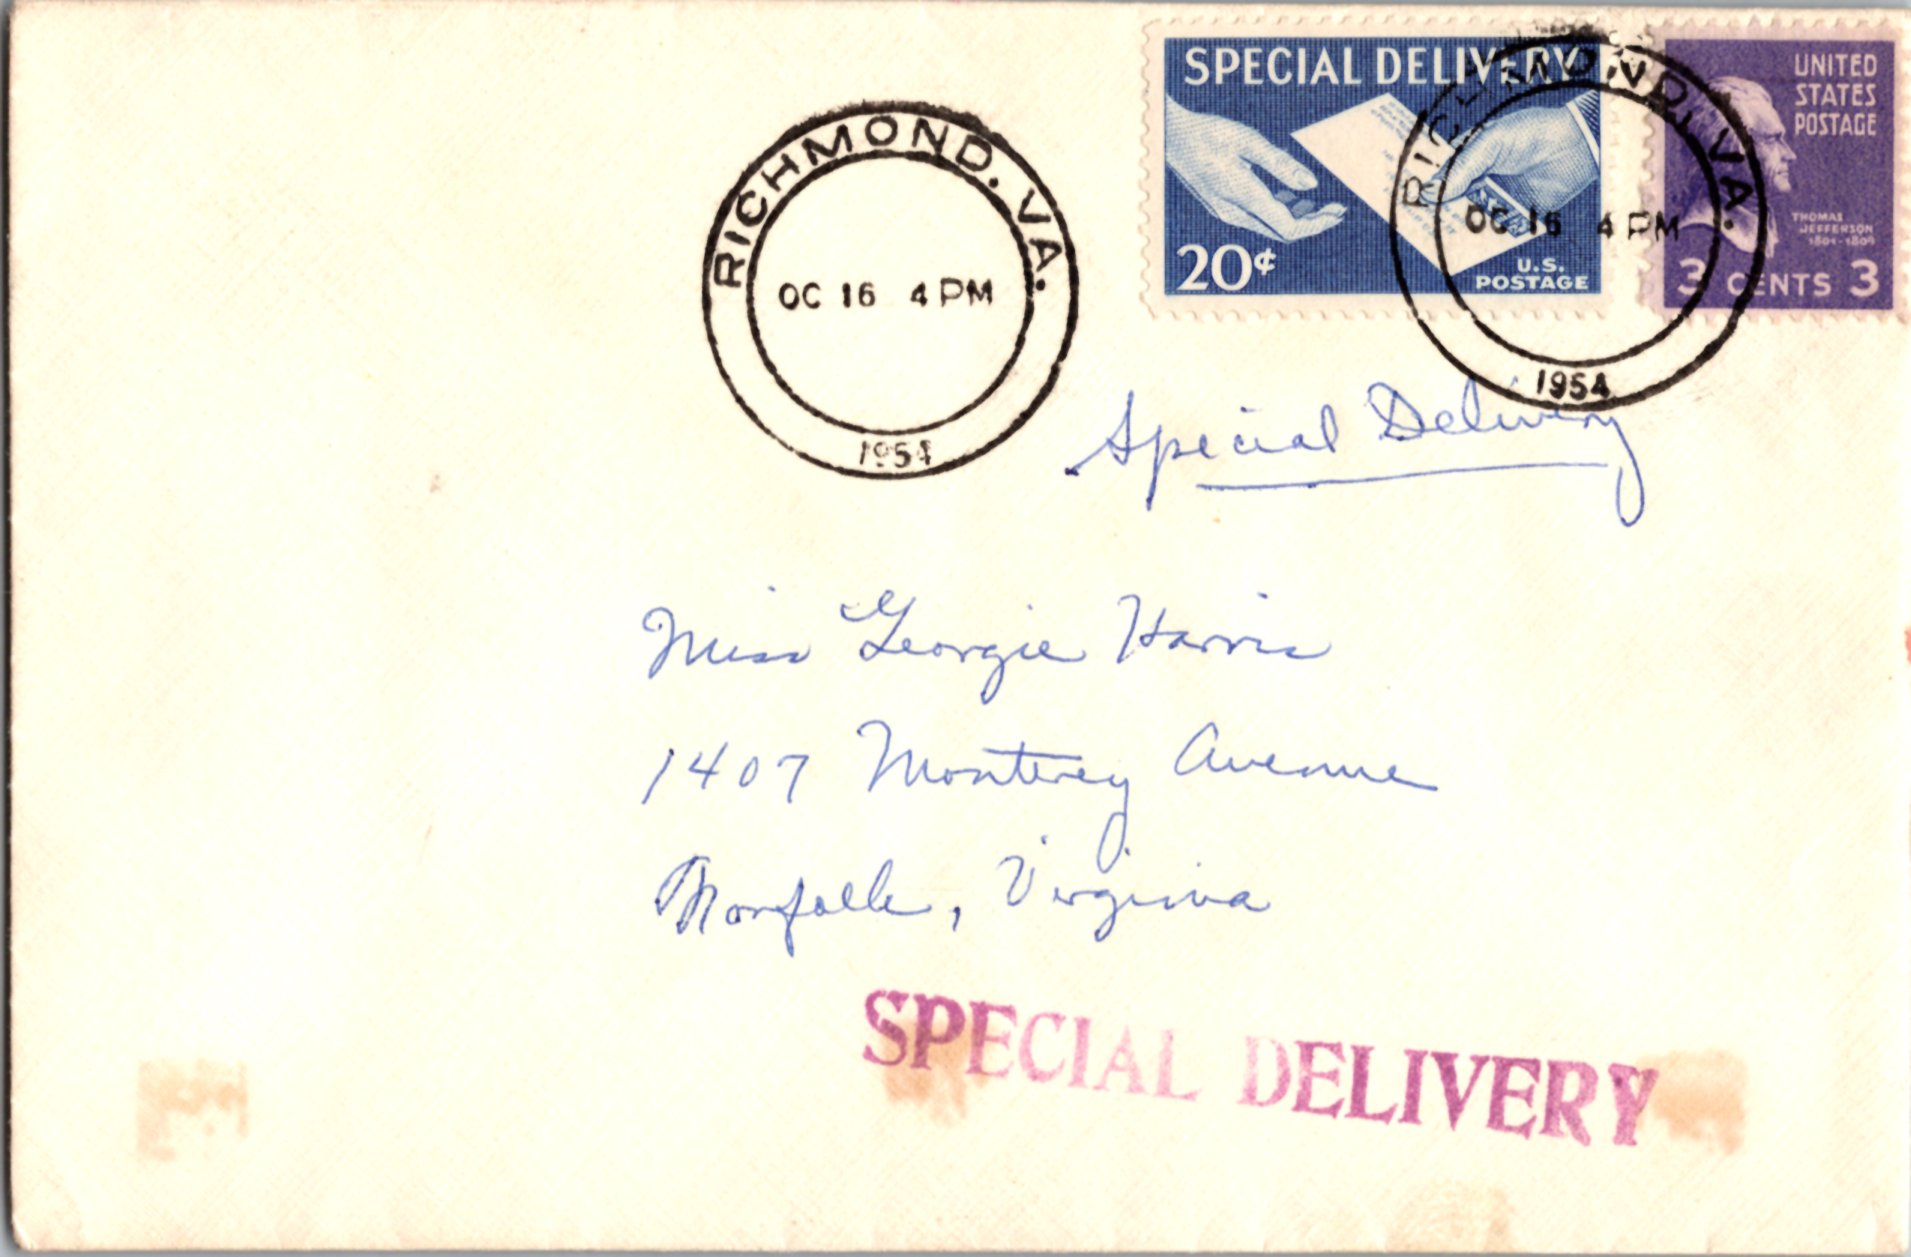 SPECIAL DELIVERY
20¢
U.S.
POSTAGE
UNITED
STATES
POSTAGE
THOMAS
JEFFERSON
1801-1809
3 CENTS 3
RICHMOND, VA.
OC 16 4 PM
1954
RICHMOND. VA.
OC 16 4 PM
1954
Special Delivery
Miss Georgie Harris
1407 Monterey Avenue
Norfolk, Virginia
SPECIAL DELIVERY